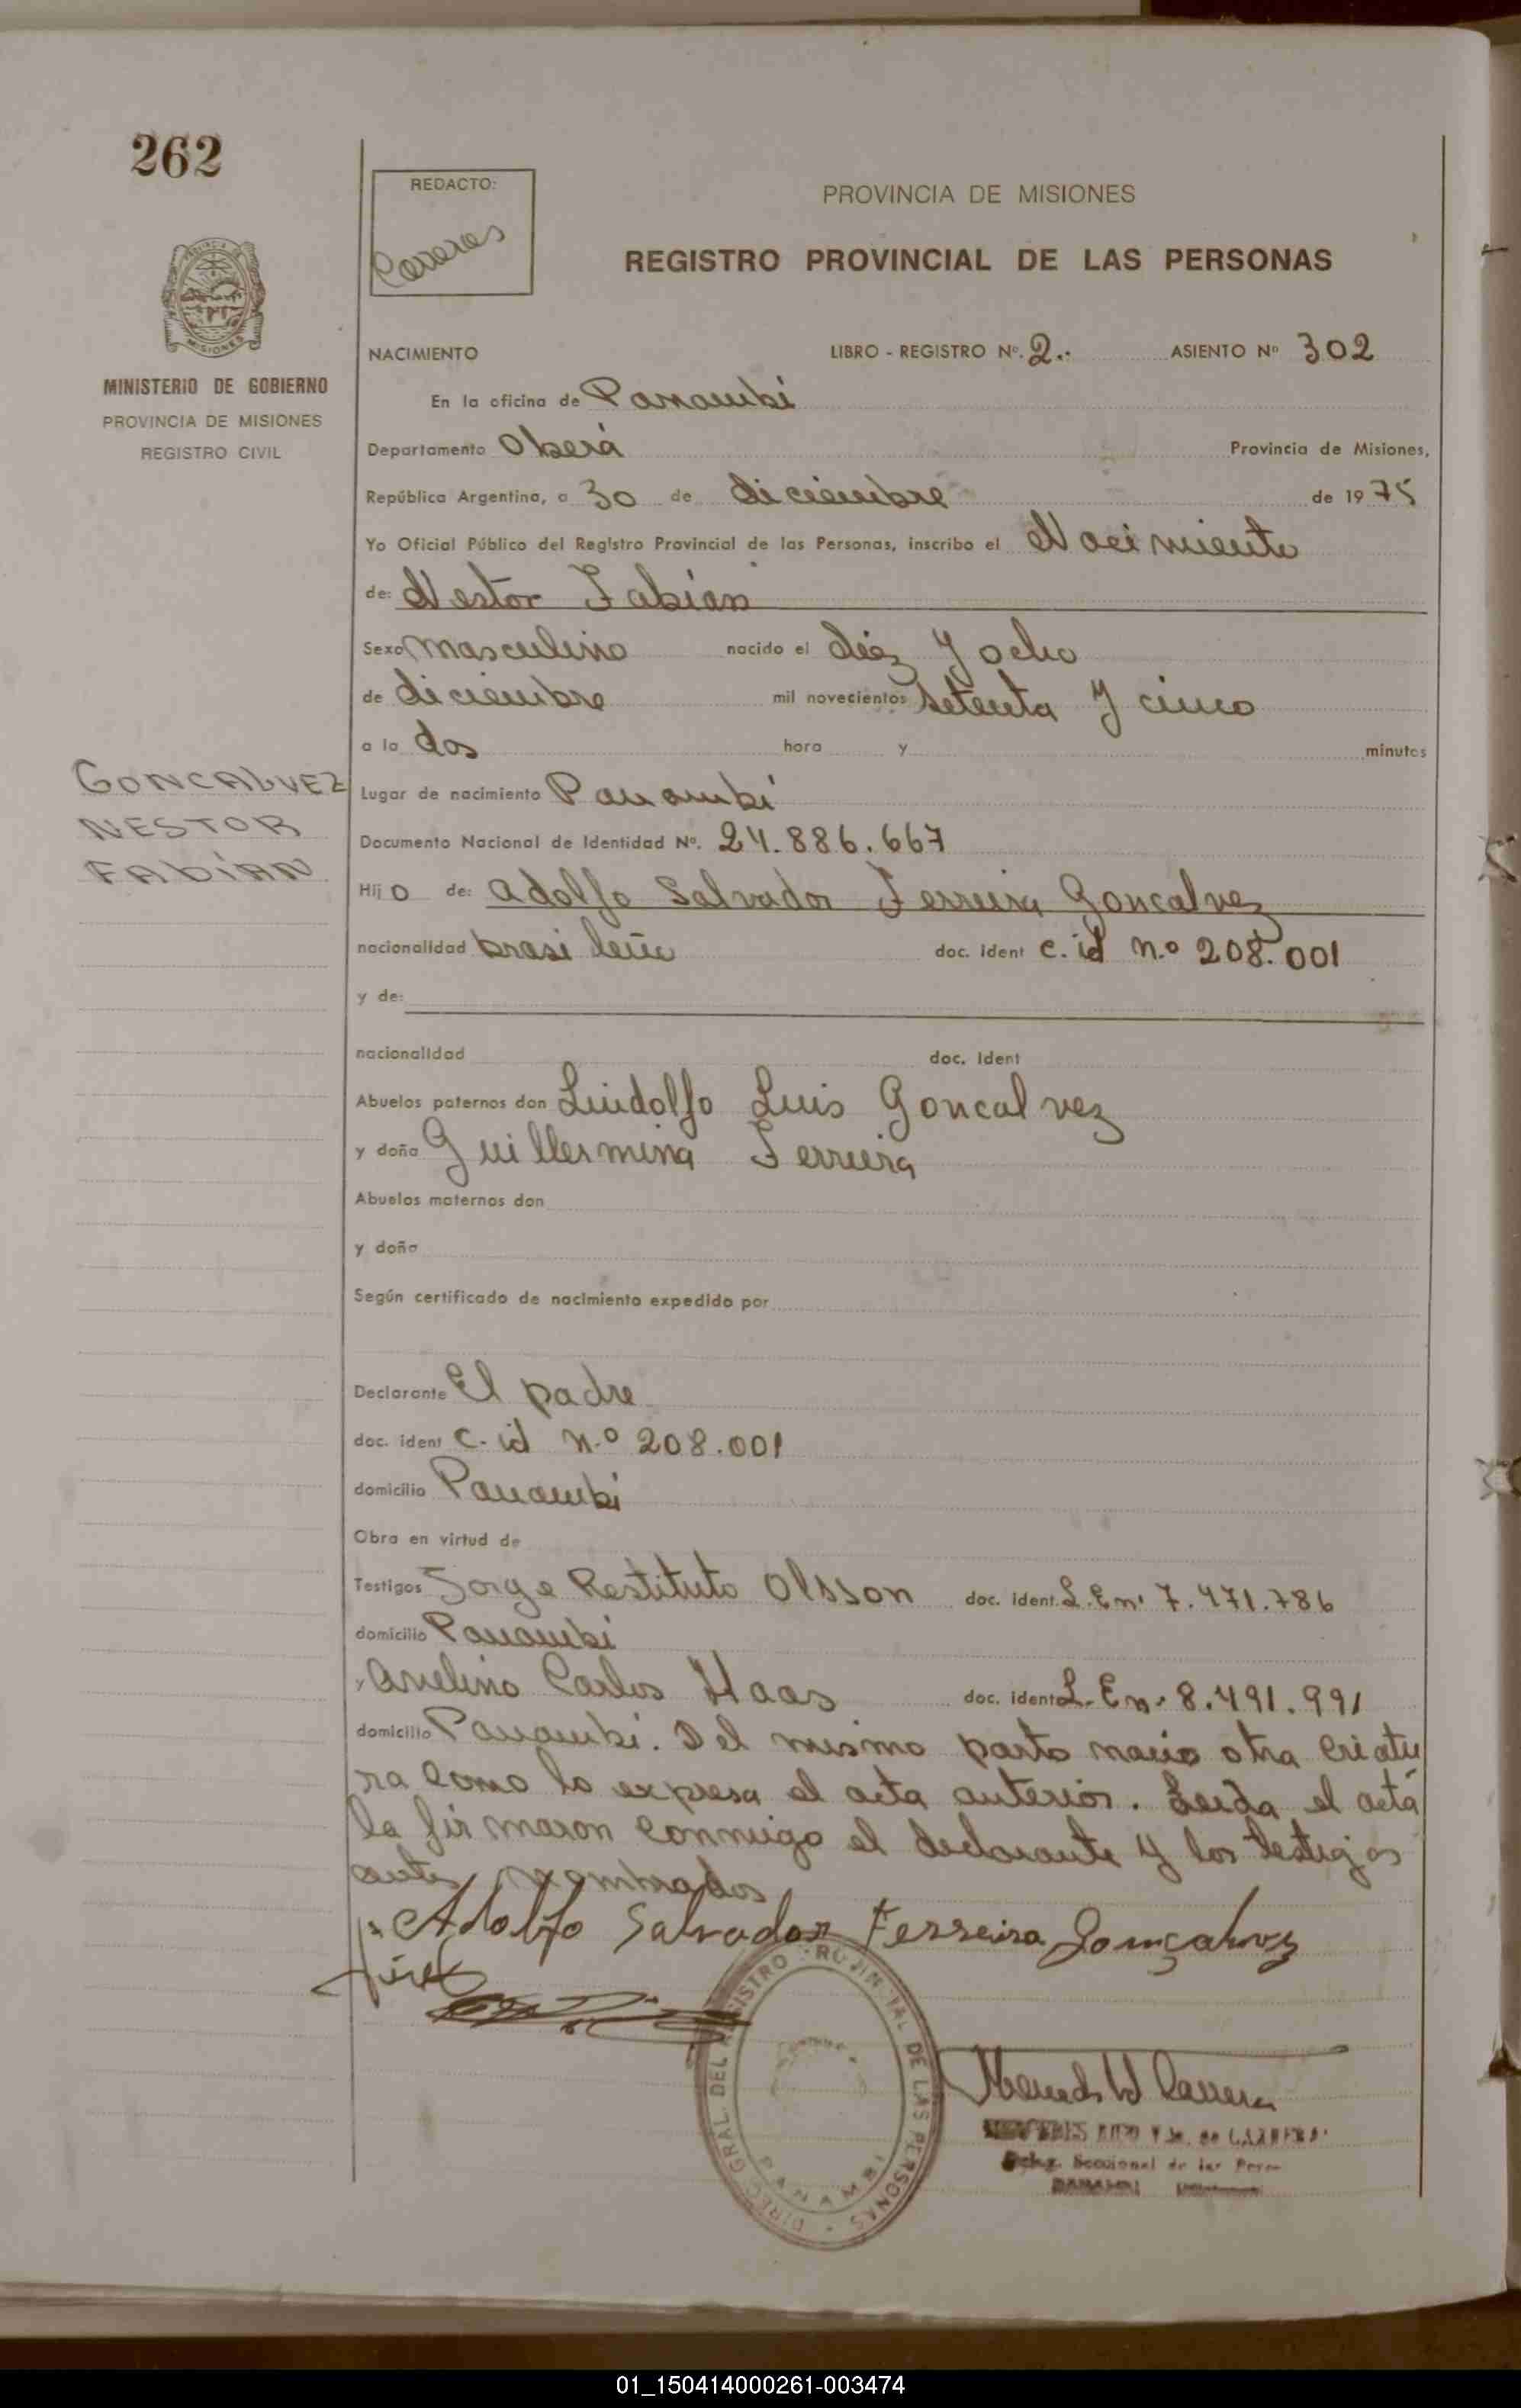 262
REDACTO:
PROVINCIA DE MISIONES
REGISTRO PROVINCIAL DE LAS PERSONAS
MISIONES
MINISTERIO DE GOBIERNO
PROVINCIA DE MISIONES
REGISTRO CIVIL
NACIMIENTO LIBRO - REGISTRO Nº. 2.. ASIENTO Nº 302
En la oficina de Panambí
Departamento Oberá Provincia de Misiones,
República Argentina, a 30 de diciembre de 1975
Yo Oficial Público del Registro Provincial de las Personas, inscribo el Nacimiento
de: Nestor Fabián
Sexo masculino nacido el diéz y ocho
de diciembre mil novecientos setenta y cinco
a la dos hora y minutos
GONCALVEZ
NESTOR
FABIÁN
Lugar de nacimiento Panambí
Documento Nacional de Identidad Nº. 24.886.667
Hij o de: Adolfo Salvador Ferreira Goncalvez
nacionalidad brasileño doc. ident c. id n.º 208.001
y de:
nacionalidad doc. ident
Abuelos paternos don Lindolfo Luis Goncalvez
y doña Guillermina Ferreira
Abuelos maternos don
y doña
Según certificado de nacimiento expedido por
Declarante El padre
doc. ident c. id n.º 208.001
domicilio Panambí
Obra en virtud de
Testigos Jorge Restituto Olsson doc. ident. L.E n. 7.471.786
domicilio Panambí
y Avelino Carlos Haas doc. ident L.E n. 8.491.991
domicilio Panambí. Del mismo parto nació otra criatu
ra como lo expresa el acta anterior. Leída el acta
la firmaron conmigo el declarante y los testigos
antes nombrados
Adolfo Salvador Ferreira Gonçalvez
DIREC. GRAL. DEL REGISTRO DE LAS PERSONAS
PANAMBI
de CARRERA
Seccional de las
PANAMBI
01_150414000261-003474